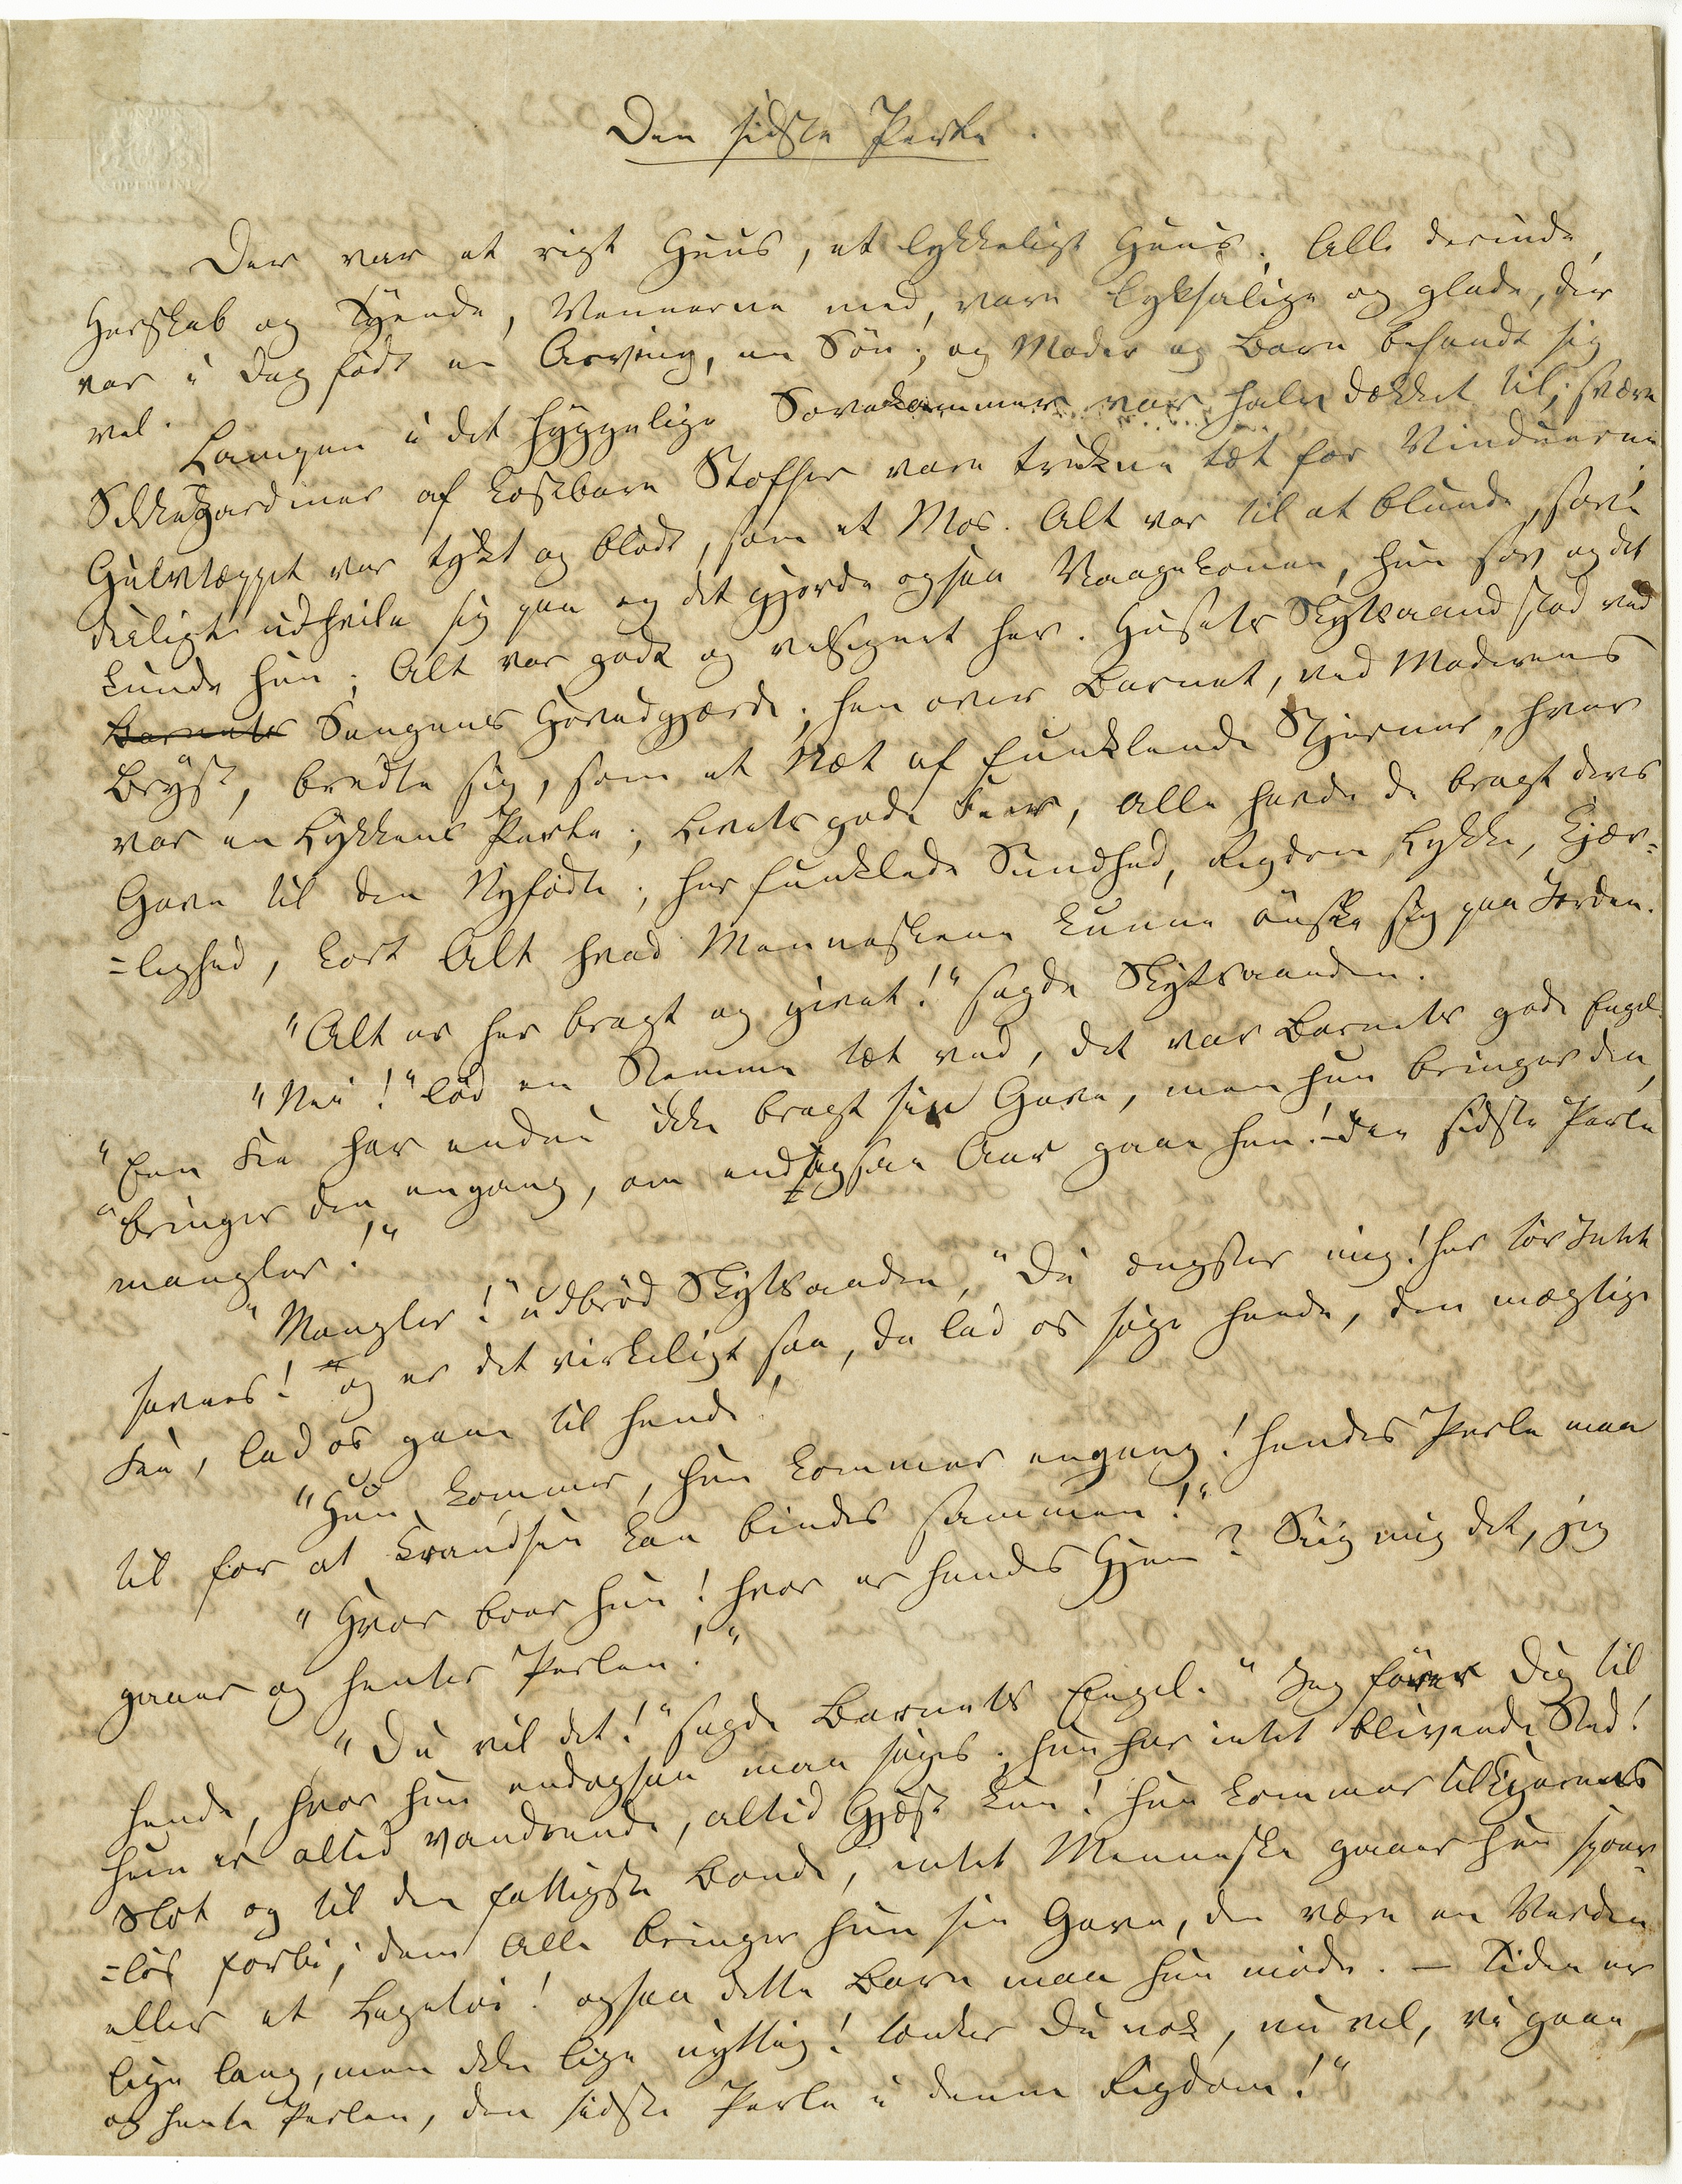 Den sidste Perle.
Der var et rigt Huus, et lykkeligt Huus. Alle derinde,
Herskab og Tyende, Vennerne med, vare lyksalige og glade, der
var i Dag født en Arving, en Søn; og Moder og Barn befandt sig
vel.
Lampen i det hyggelige Sovekammer var halv dækket til; svære
Silkegardiner af kostbare Stoffer vare trukne tæt for Vinduerne
Gulvtæppet var tykt og blødt, som et Mos. Alt var til at blunde, sove
deiligt udhvile sig paa og det gjorde ogsaa Vaagekonen, hun sov og det
kunde hun; Alt var godt og velsignet her. Husets Skytsaand stod ved
Barnets Sengens Hovedgjærde; hen over Barnet, ved Moderens
Bryst, bredte sig, som et Næt af funklende Stjerner, hver
var en Lykkens Perle; Livets gode Feer, alle havde de bragt deres
Gave til den Nyfødte; her funklede Sundhed, Rigdom, Lykke, Kjær=
=lighed, kort Alt hvad Menneskene kunne ønske sig paa Jorden.
"Alt er her bragt og givet!" sagde Skytsaanden.
"Nei!" lød en Stemme tæt ved, det var Barnets gode Engel.
"Een Fee har endnu ikke bragt sin Gave, men hun bringer den,
"bringer den engang, om endogsaa Aar gaae hen! Den sidste Perle
mangler!"
"Mangler!" udbrød Skytsaanden, "Du ængster mig! her tør Intet
savnes! og er det virkeligt saa, da lad os søge hende, den mægtige
Fee, lad os gaae til hende!
"Hun kommer, hun kommer engang! hendes Perle maa
til for at Krandsen kan bindes sammen!"
"Hvor boer hun! hvor er hendes Hjem? Siig mig det, jeg
gaaer og henter Perlen!"
"Du vil det!" sagde Barnets Engel. "Jeg fører Dig til
hende, hvor hun endogsaa maa søges; hun har intet blivende Sted!
hun er altid vandrende, altid Gjæst kun! hun kommer til Keiserens
Slot og til den fattigste Bonde, intet Menneske gaaer hun spoer=
=løs forbi; dem Alle bringer hun sin Gave, den være en Verden
eller et Legetøi! ogsaa dette Barn maa hun møde. — Tiden er
lige lang, men ikke lige nyttig! tænker Du nok, nu vel, vi gaae,
og hente Perlen, den sidste Perle i denne Rigdom!"